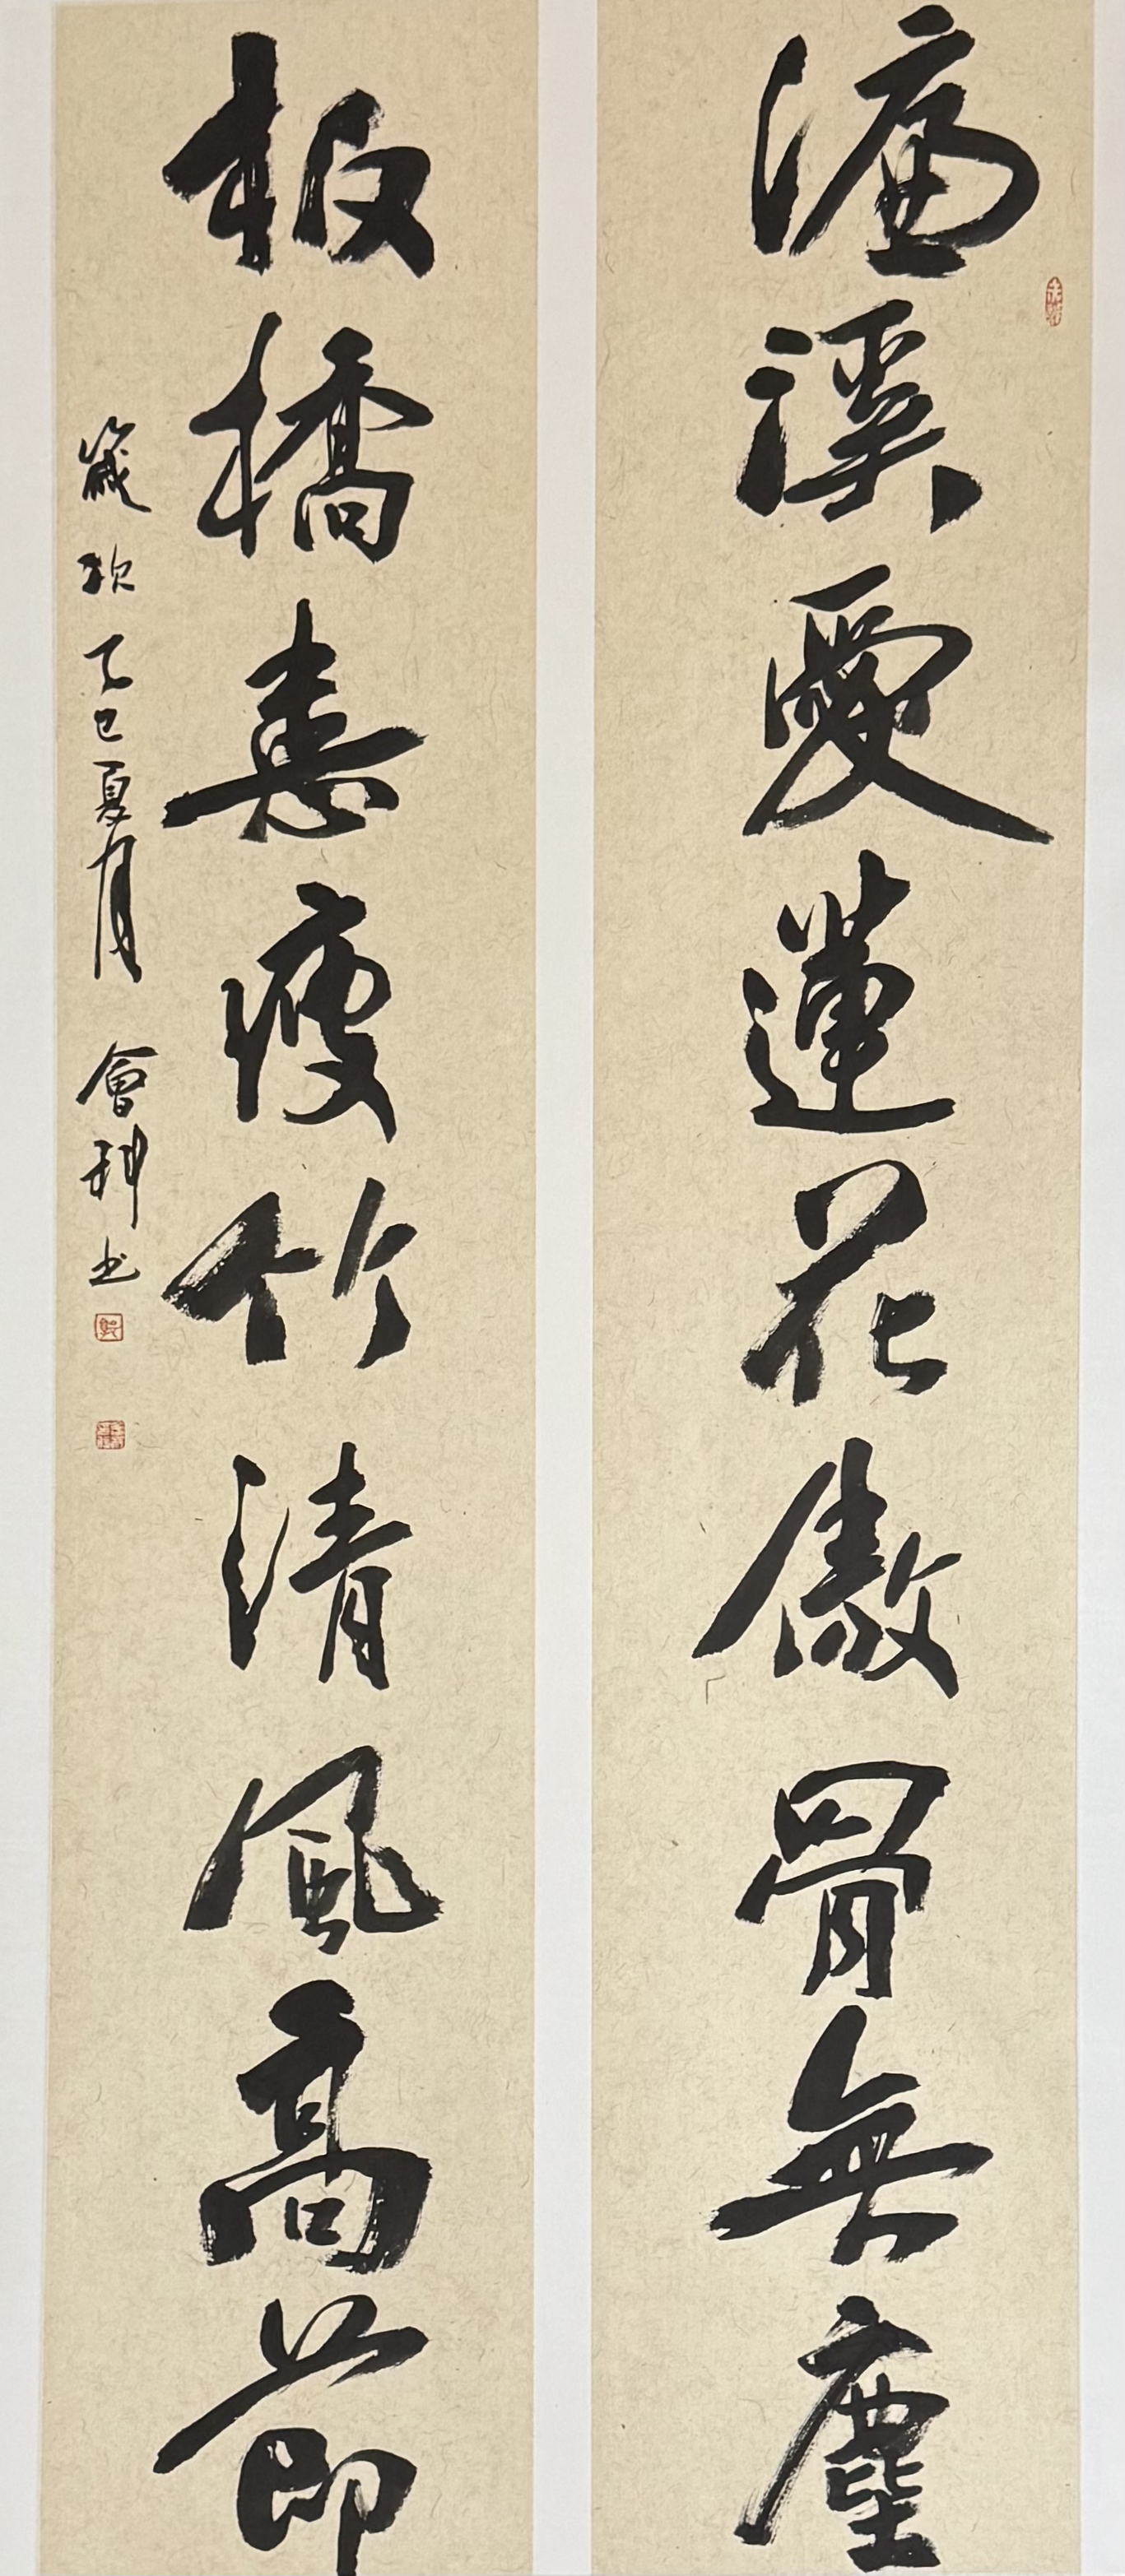 濂溪愛蓮花傲骨無塵
板橋憙瘦竹清風高節
乙巳夏月 會 书